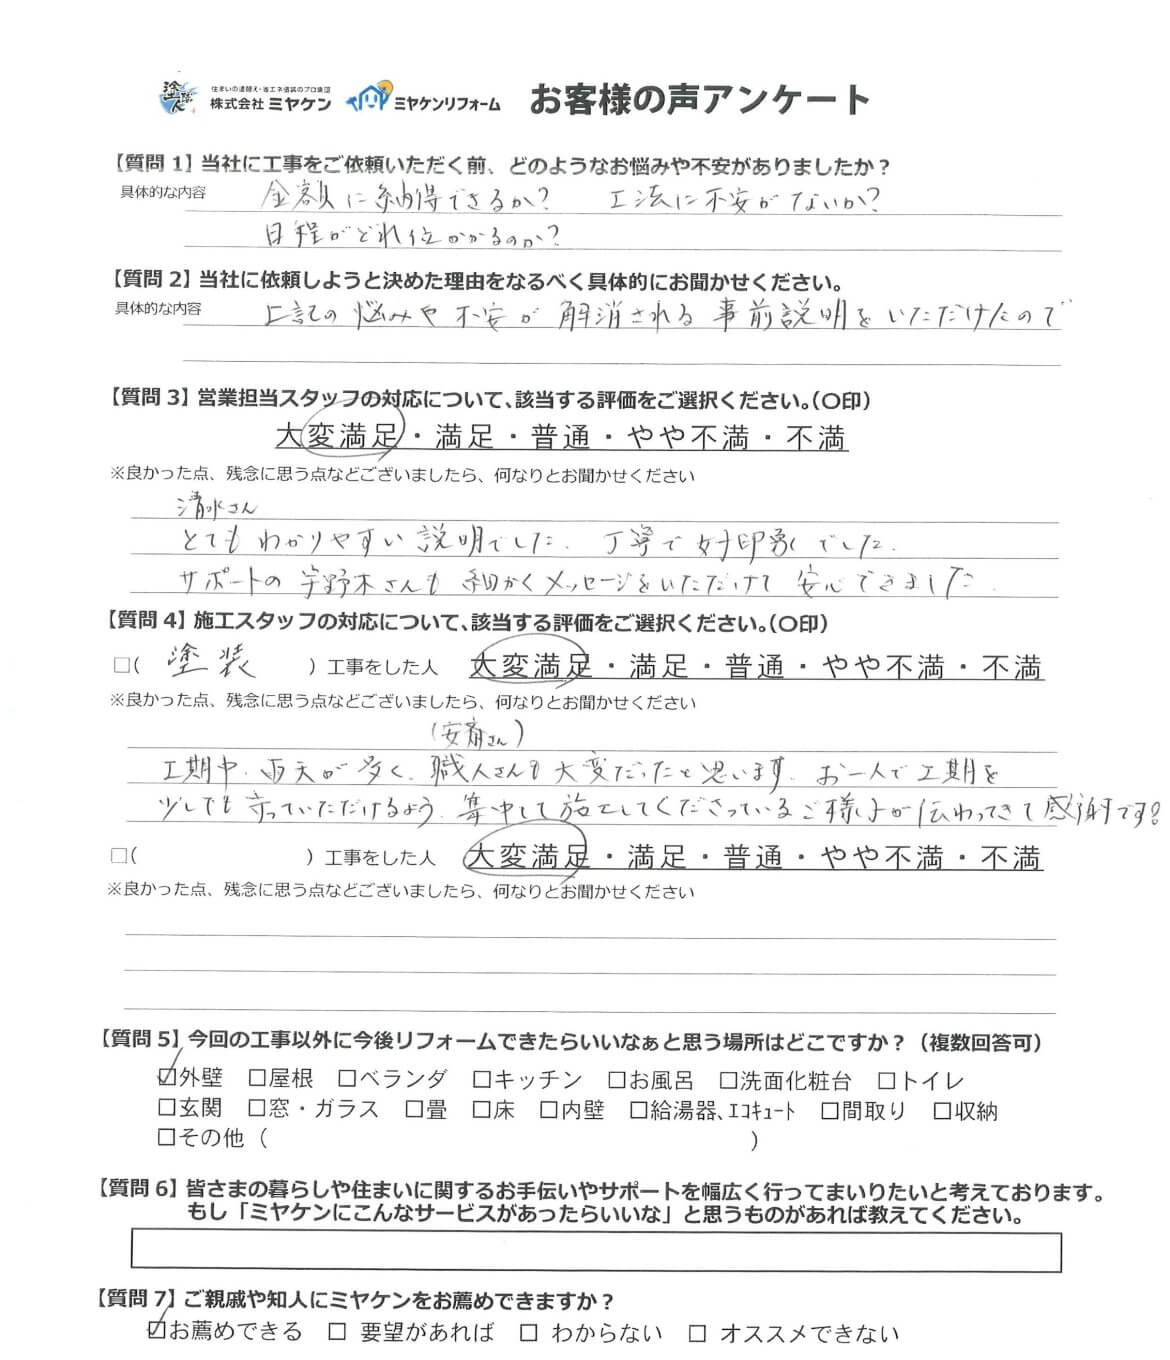 塗替人 住まいの塗替え・省エネ塗装のプロ集団
株式会社 ミヤケン ミヤケンリフォーム お客様の声アンケート
【質問 1】当社に工事をご依頼いただく前、どのようなお悩みや不安がありましたか？
具体的な内容 金額に納得できるか? 工法に不安がないか?
日程がどれ位かかるのか?
【質問 2】当社に依頼しようと決めた理由をなるべく具体的にお聞かせください。
具体的な内容 上記の悩みや不安が解消される事前説明をいただけたので
【質問 3】営業担当スタッフの対応について、該当する評価をご選択ください。（○印）
大変満足・満足・普通・やや不満・不満
※良かった点、残念に思う点などございましたら、何なりとお聞かせください
清水さん
とてもわかりやすい説明でした. 丁寧で好印象でした.
サポートの宇野木さんも細かくメッセージをいただけて安心できました.
【質問 4】施工スタッフの対応について、該当する評価をご選択ください。（○印）
□（ 塗装 ）工事をした人 大変満足・満足・普通・やや不満・不満
※良かった点、残念に思う点などございましたら、何なりとお聞かせください
(安斎さん)
工期中、雨天が多く、職人さんも大変だったと思います. お一人で工期を
少しでも守っていただけるよう、集中して施工してくださっているご様子が伝わってきて感謝です!
□（ ）工事をした人 大変満足・満足・普通・やや不満・不満
※良かった点、残念に思う点などございましたら、何なりとお聞かせください
【質問 5】今回の工事以外に今後リフォームできたらいいなぁと思う場所はどこですか？（複数回答可）
☑外壁 □屋根 □ベランダ □キッチン □お風呂 □洗面化粧台 □トイレ
□玄関 □窓・ガラス □畳 □床 □内壁 □給湯器、ｴｺｷｭｰﾄ □間取り □収納
□その他（ ）
【質問 6】皆さまの暮らしや住まいに関するお手伝いやサポートを幅広く行ってまいりたいと考えております。
もし「ミヤケンにこんなサービスがあったらいいな」と思うものがあれば教えてください。
【質問 7】ご親戚や知人にミヤケンをお薦めできますか？
☑お薦めできる □ 要望があれば □ わからない □ オススメできない